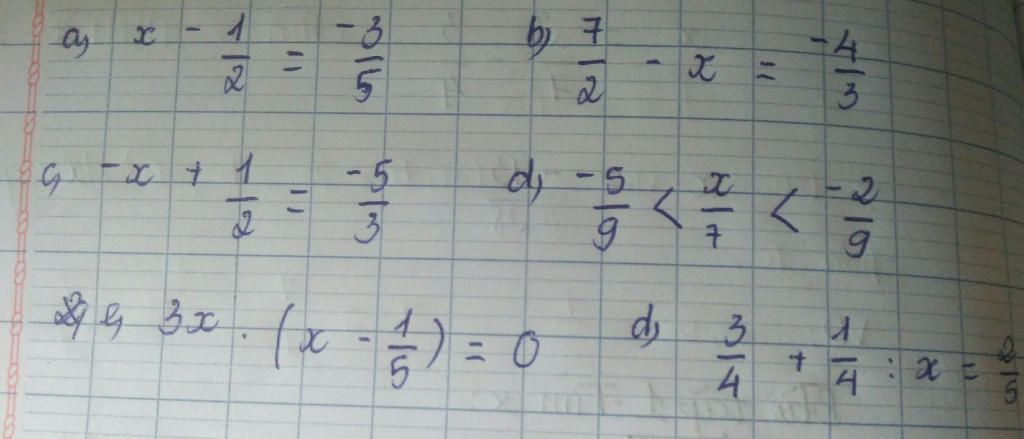 a, x - 1/2 = -3/5 b, 7/2 - x = -4/3
c, -x + 1/2 = -5/3 d, -5/9 < x/7 < -2/9
e, 3x . (x - 1/5) = 0 d, 3/4 + 1/4 : x = 2/5